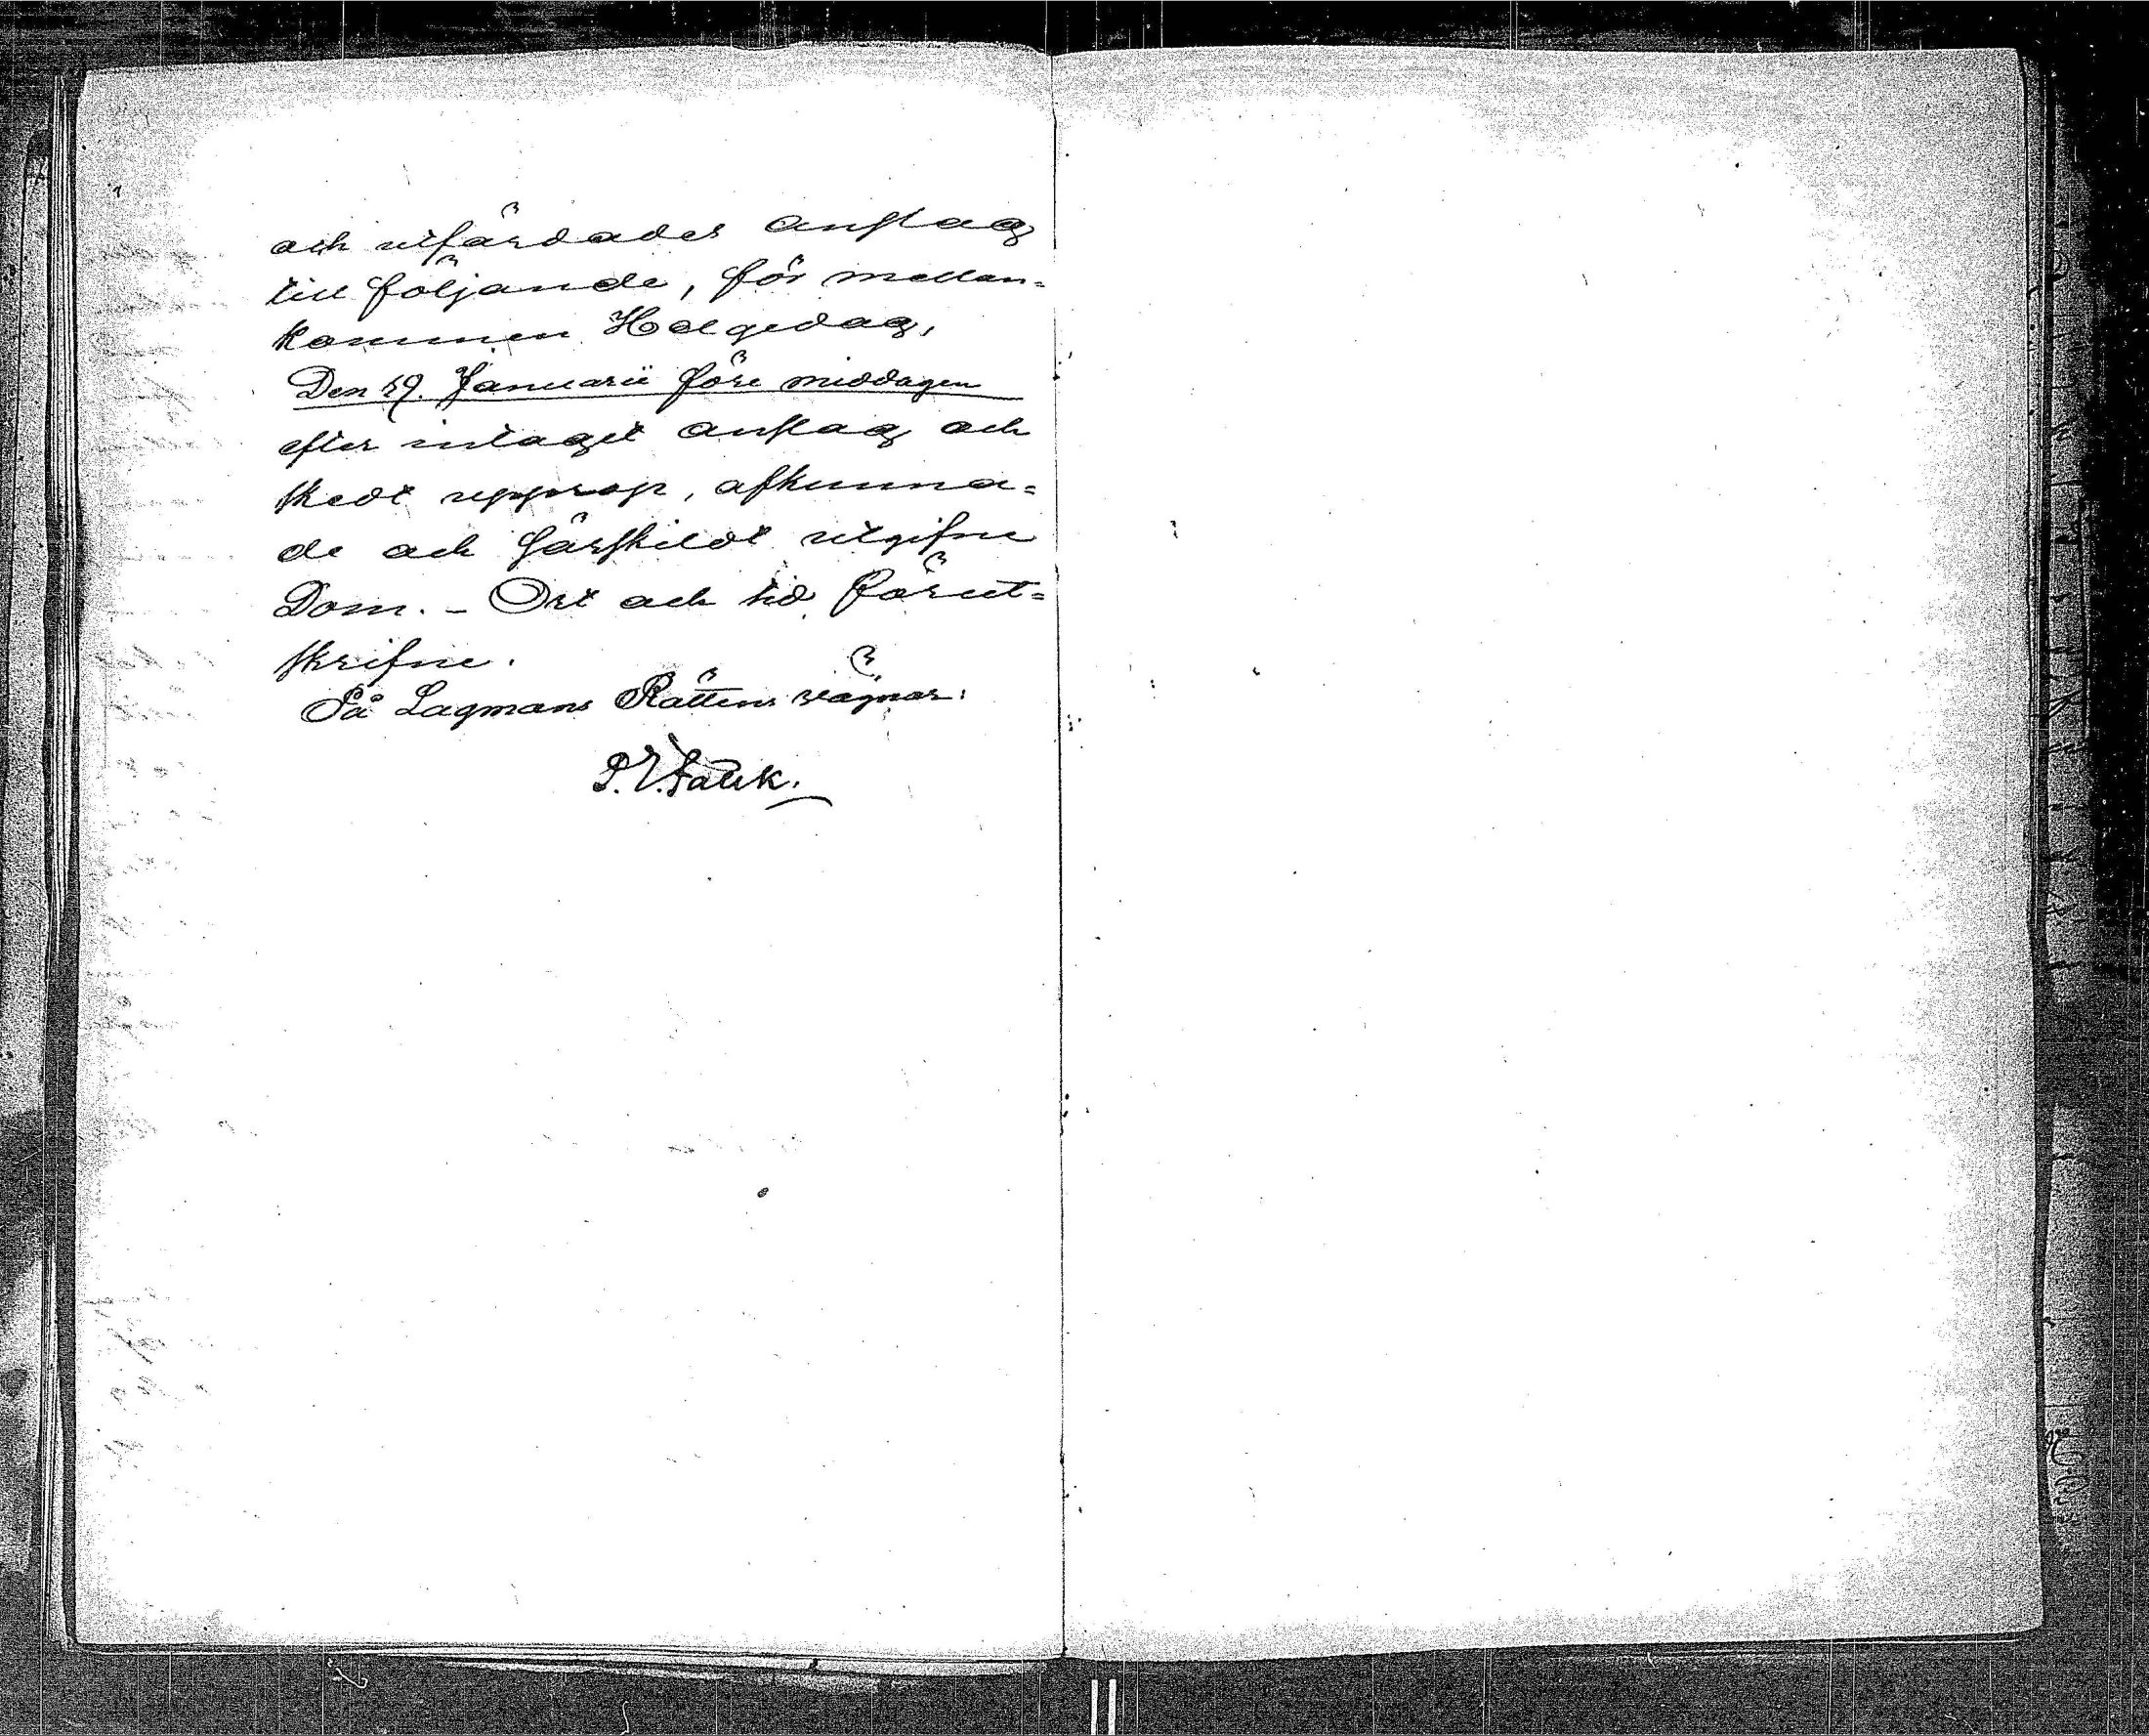 och utfärdades anslag
till följande, för mellan=
kommen Helgedag,
Den 19. Januarii före middagen
efter intaget anslag och
skedt upprop, afkunna=
de och särskildt utgifne
Dom. – Ort och tid förut=
skrifne.
På Lagmans Rättens vägnar: